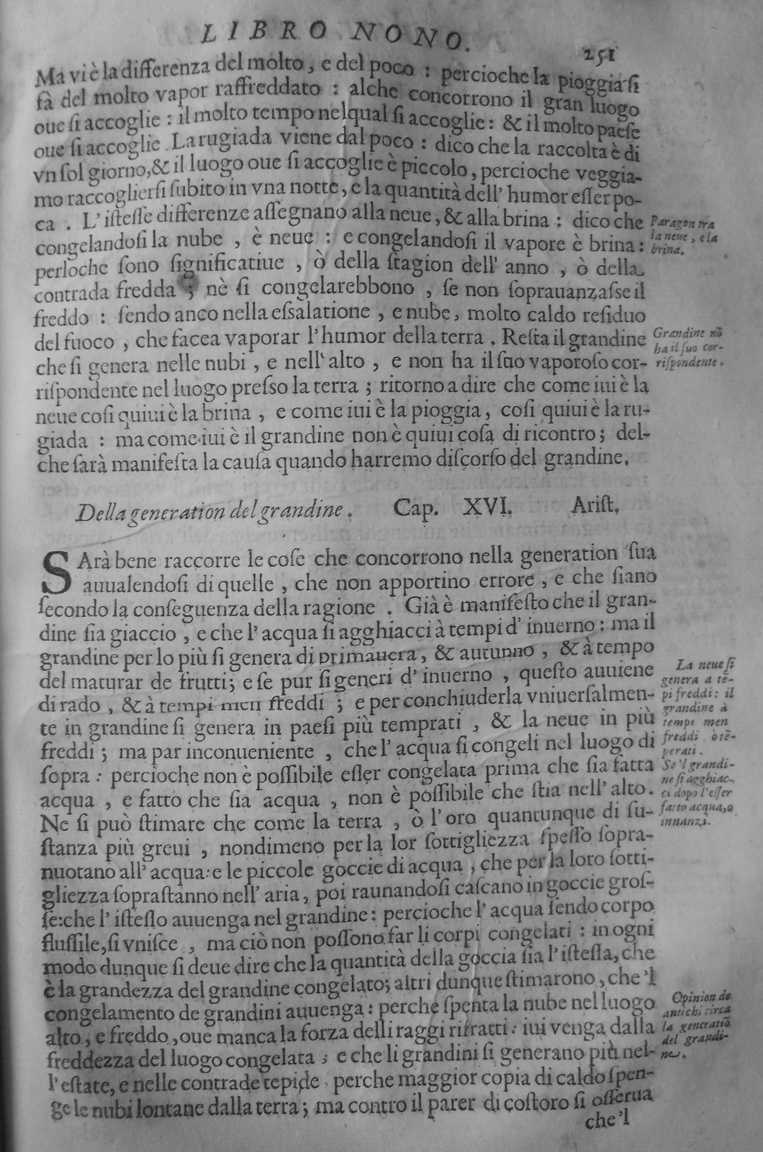 LIBRO NONO.
251
Ma vi è la differenza del molto, e del poco : percioche la pioggia ſi
fà del molto vapor raffreddato : alche concorrono il gran luogo
oue ſi accoglie : il molto tempo nel qual ſi accoglie : & il molto paeſe
oue ſi accoglie . La rugiada viene dal poco : dico che la raccolta è di
vn ſol giorno, & il luogo oue ſi accoglie è piccolo, percioche veggia-
mo raccoglierſi ſubito in vna notte, e la quantità dell' humor eſſer po-
ca . L'iſteſſe differenze aſſegnano alla neue, & alla brina : dico che
congelandoſi la nube , è neue : e congelandoſi il vapore è brina :
perloche ſono ſignificatiue , ò della ſtagion dell' anno , ò della
contrada fredda ; nè ſi congelarebbono , ſe non ſoprauanzaſse il
freddo : ſendo anco nella eſſalatione , e nube, molto caldo reſiduo
del fuoco , che facea vaporar l'humor della terra . Reſta il grandine
che ſi genera nelle nubi , e nell' alto , e non ha il ſuo vaporoſo cor-
riſpondente nel luogo preſso la terra ; ritorno a dire che come iui è la
neue coſi quiui è la brina , e come iui è la pioggia, coſi quiui è la ru-
giada : ma come iui è il grandine non è quiui coſa di ricontro ; del-
che ſarà manifeſta la cauſa quando harremo diſcorſo del grandine.
Paragon tra
la neue, e la
brina.
Grandine nõ
ha il ſuo cor-
riſpondente.
Della generation del grandine. Cap. XVI. Ariſt.
SArà bene raccorre le coſe che concorrono nella generation ſua
auualendoſi di quelle , che non apportino errore , e che ſiano
ſecondo la conſeguenza della ragione . Già è manifeſto che il gran-
dine ſia giaccio , e che l'acqua ſi agghiacci à tempi d' inuerno : ma il
grandine per lo più ſi genera di primauera, & autunno , & à tempo
del maturar de frutti; e ſe pur ſi generi d' inuerno , queſto auuiene
di rado , & à tempi men freddi ; e per conchiuderla vniuerſalmen-
te in grandine ſi genera in paeſi più temprati , & la neue in più
freddi ; ma par inconueniente , che l' acqua ſi congeli nel luogo di
ſopra : percioche non è poſſibile eſſer congelata prima che ſia fatta
acqua , e fatto che ſia acqua , non è poſſibile che ſtia nell' alto.
Ne ſi può ſtimare che come la terra , ò l'oro quantunque di ſu-
ſtanza più greui , nondimeno per la lor ſottigliezza ſpeſſo ſopra-
nuotano all' acqua: e le piccole goccie di acqua , che per la loro ſotti-
gliezza ſopraſtanno nell' aria, poi raunandoſi caſcano in goccie groſ-
ſe: che l'iſteſſo auuenga nel grandine : percioche l'acqua ſendo corpo
fluſſile, ſi vniſce , ma ciò non poſſono far li corpi congelati : in ogni
modo dunque ſi deue dire che la quantità della goccia ſia l'iſteſſa, che
è la grandezza del grandine congelato; altri dunque ſtimarono, che 'l
congelamento de grandini auuenga : perche ſpenta la nube nel luogo
alto, e freddo, oue manca la forza delli raggi rifratti : iui venga dalla
freddezza del luogo congelata ; e che li grandini ſi generano più nel-
l'eſtate, e nelle contrade tepide perche maggior copia di caldo ſpen-
ge le nubi lontane dalla terra ; ma contro il parer di coſtoro ſi oſſerua
che 'l
La neue ſi
genera a tẽ-
pi freddi : il
grandine à
tempi men
freddi o tẽ-
perati.
Se 'l grandi-
ne ſi agghiac-
ci dopo l'eſſer
fatto acqua, o
innanzi.
Opinion de
antichi circa
la generatiõ
del grandi-
ne.